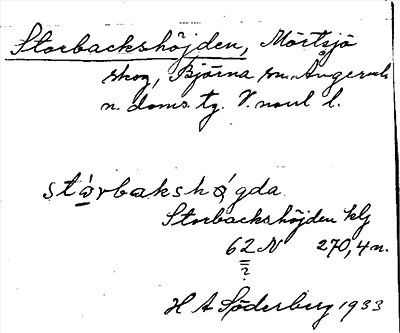 Storbackshöjden, Mörtsjö
skog, Björna sn. Ångerml.
n. doms. tg. V. norrl l.
stårbakshögda
Storbackshöjden klj
62 N 270,4 m.
?
H A Söderberg 1933